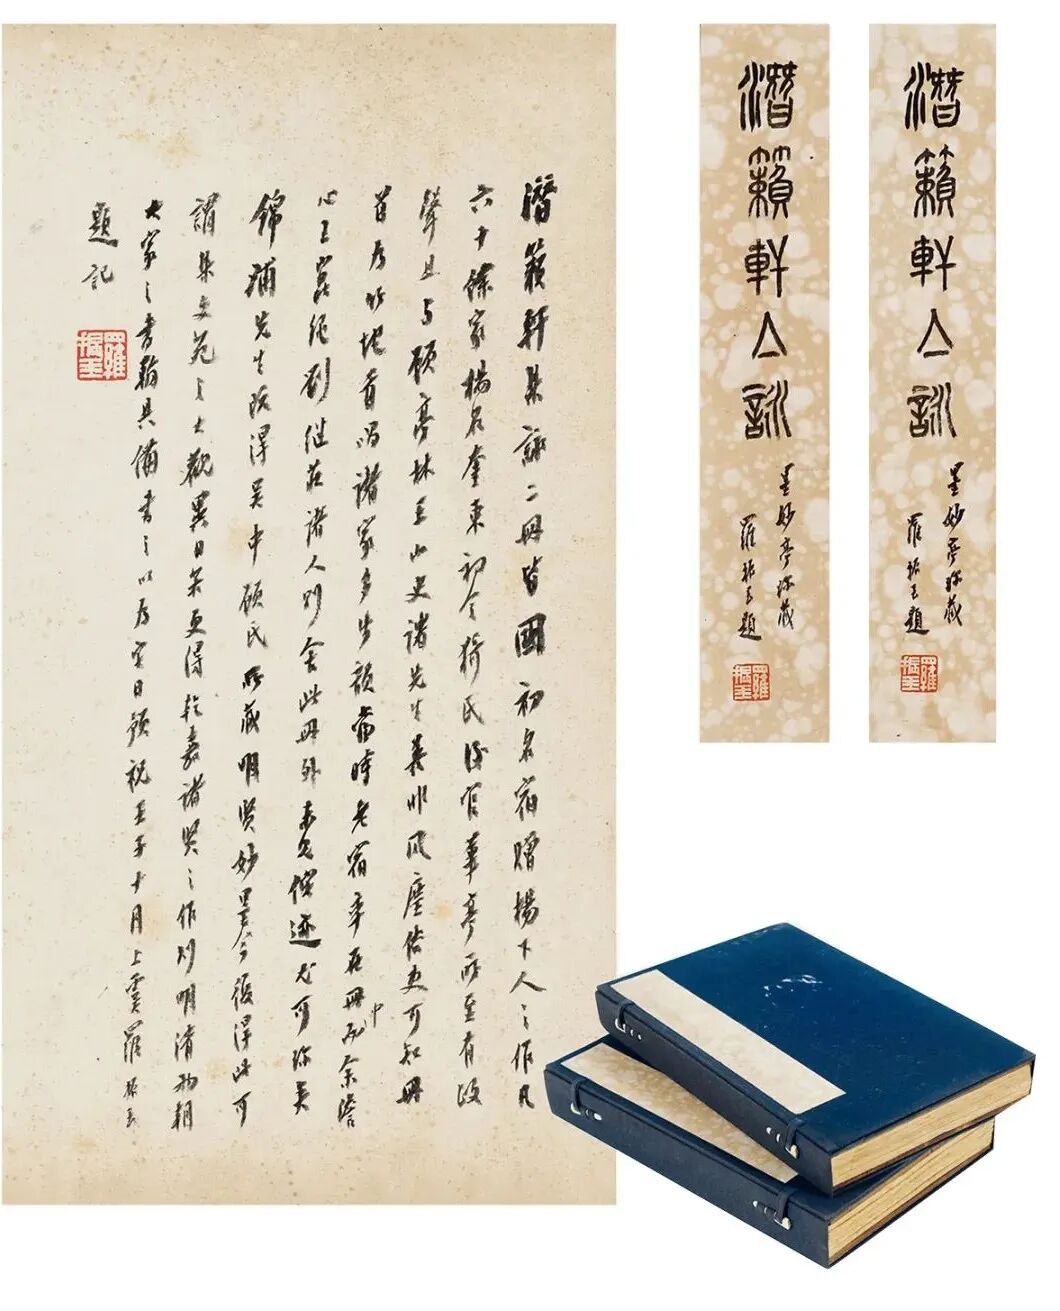 潛籟軒集詠二冊皆國初名宿贈楊下人之作凡
六十餘家楊名奎東初令猗氏後官華亭所至有政
聲且与顧亭林王山史諸先生善非风塵俗吏可知冊
首为北地首唱諸家多步韻當時老宿半在冊中而余澹
心王崑繩劉继莊諸人則舍此冊外未見迹尤可珍矣
錦浦先生既得吴中顧氏所藏明賢妙墨今復得此可
謂集文苑之大觀異日若更得乾嘉諸賢之作则明清兩朝
大家之書翰具備書之以为它日預祝壬子十月上虞羅振玉
題記
羅振玉
潛籟軒亼詠
墨妙亭珍藏
羅振玉題
羅振玉
潛籟軒亼詠
墨妙亭珍藏
羅振玉題
羅振玉